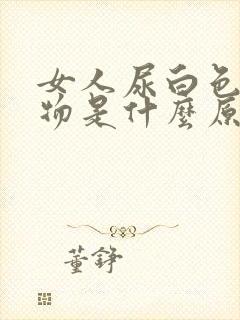 女人尿白色
物是什麼原
董錚